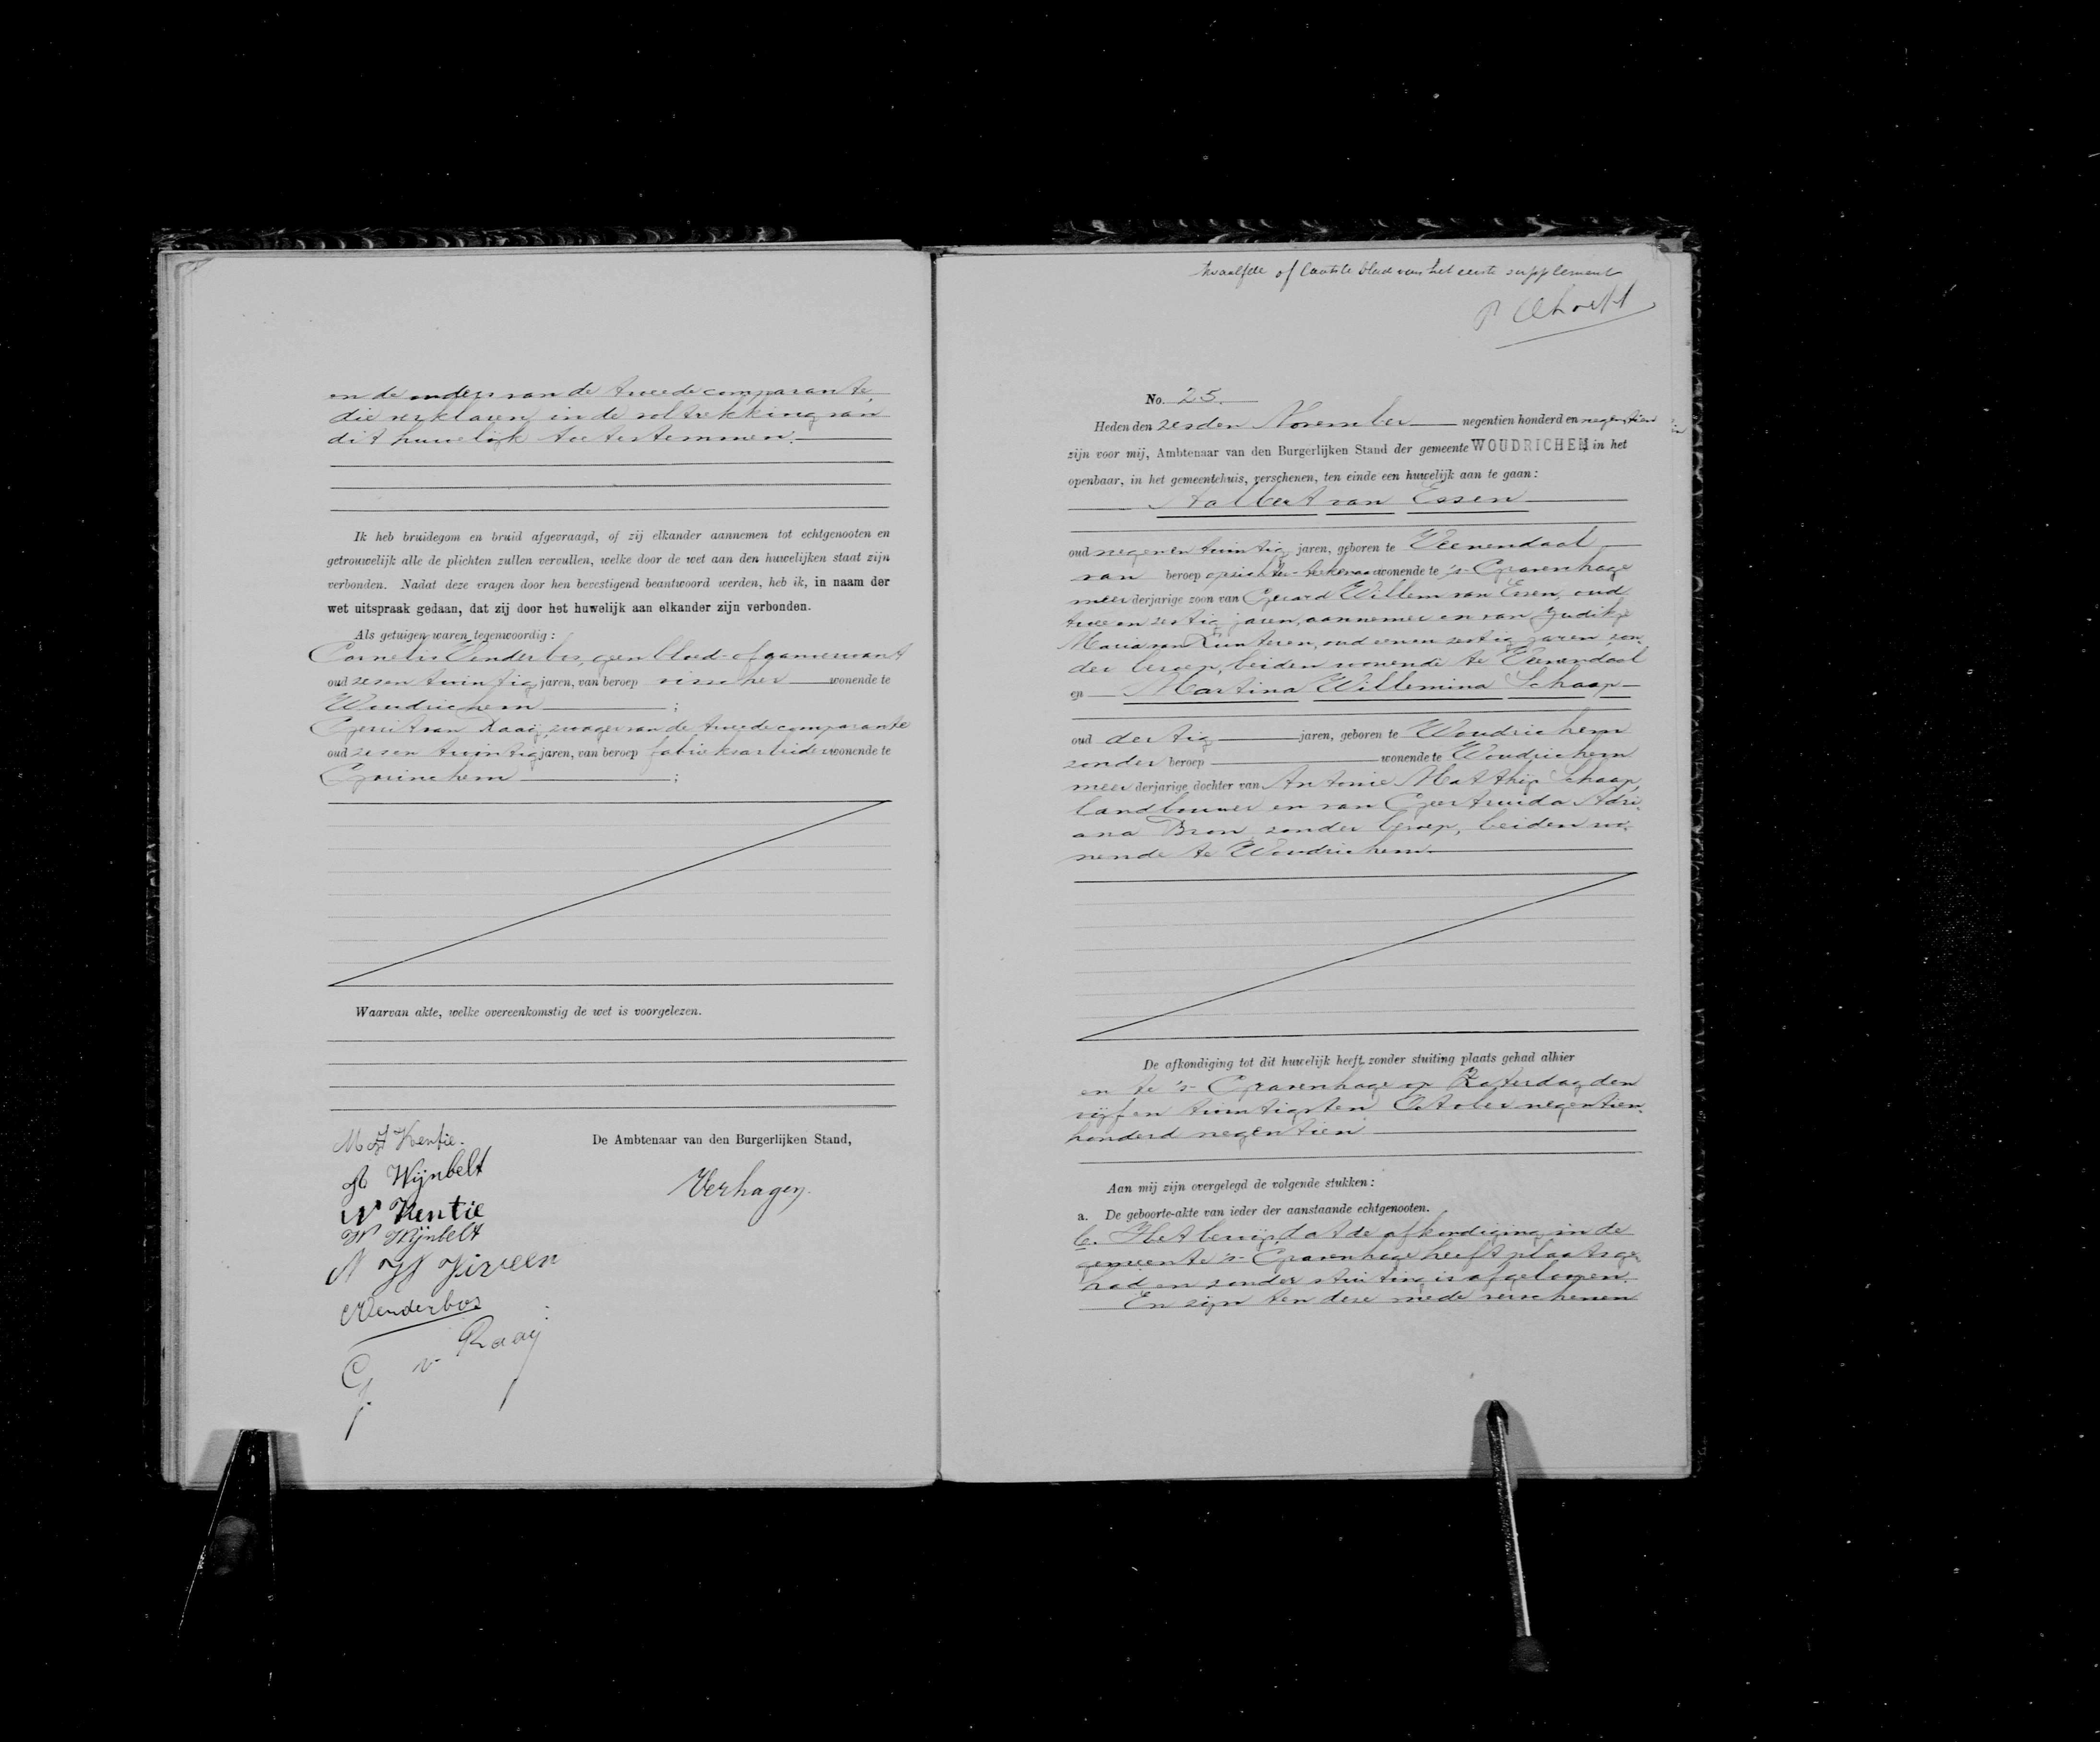 en de ouders van de tweede comparante,
die verklaren in de voltrekking van
dit huwelijk toetestemmen.
Ik heb bruidegom en bruid afgevraagd, of zij elkander aannemen tot echtgenooten en
getrouwelijk alle de plichten zullen vervullen, welke door de wet aan den huwelijken staat zijn
verbonden. Nadat deze vragen door hen bevestigend beantwoord werden, heb ik, in naam der
wet uitspraak gedaan, dat zij door het huwelijk aan elkander zijn verbonden.
Als getuigen waren tegenwoordig:
Cornelis Venderbos, geen bloed- of aanverwant
oud zes en twintig jaren, van beroep visscher wonende te
Woudrichem ;
Gerrit van Raaij, zwager van de tweede comparante
oud zes en twintig jaren, van beroep fabrieksarbeider wonende te
Gorinchem ;
Waarvan akte, welke overeenkomstig de wet is voorgelezen.
De Ambtenaar van den Burgerlijken Stand,
Verhagen.
M A Kentie.
A Wijnbelt
N Kentie
W Wijnbelt
CVenderbos
G v Raaij
twaalfde of laatste blad van het eerste supplement
No. 25.
Heden den zesden November negentien honderd en negentien
zijn voor mij, Ambtenaar van den Burgerlijken Stand der gemeente WOUDRICHEM, in het
openbaar, in het gemeentehuis, verschenen, ten einde een huwelijk aan te gaan:
Aalbert van Essen
oud negen en twintig jaren, geboren te Veenendaal
van beroep opzichter-teekenaar wonende te 's-Gravenhage
meerderjarige zoon van Gerard Willem van Essen, oud
twee en zestig jaren, aannemer en van Judikje
Maria van Lunteren, oud een en zestig jaren, zon-
der beroep, beiden wonende te Veenendaal
en Martina Willemina Schaap
oud dertig jaren, geboren te Woudrichem
zonder beroep wonende te Woudrichem
meerderjarige dochter van Antonie Matthijs Schaap,
landbouwer en van Geertruida Adri-
ana Bron, zonder beroep, beiden wo-
nende te Woudrichem.
De afkondiging tot dit huwelijk heeft zonder stuiting plaats gehad alhier
en te 's-Gravenhage op Zaterdag den
vijf en twintigsten October negentien-
honderd negentien
Aan mij zijn overgelegd de volgende stukken:
a. De geboorte-akte van ieder der aanstaande echtgenooten.
b. Het bewijs, dat de afkondiging in de
gemeente 's-Gravenhage heeft plaats ge-
had en zonder stuiting is afgeloopen.
En zijn ten deze mede verschenen